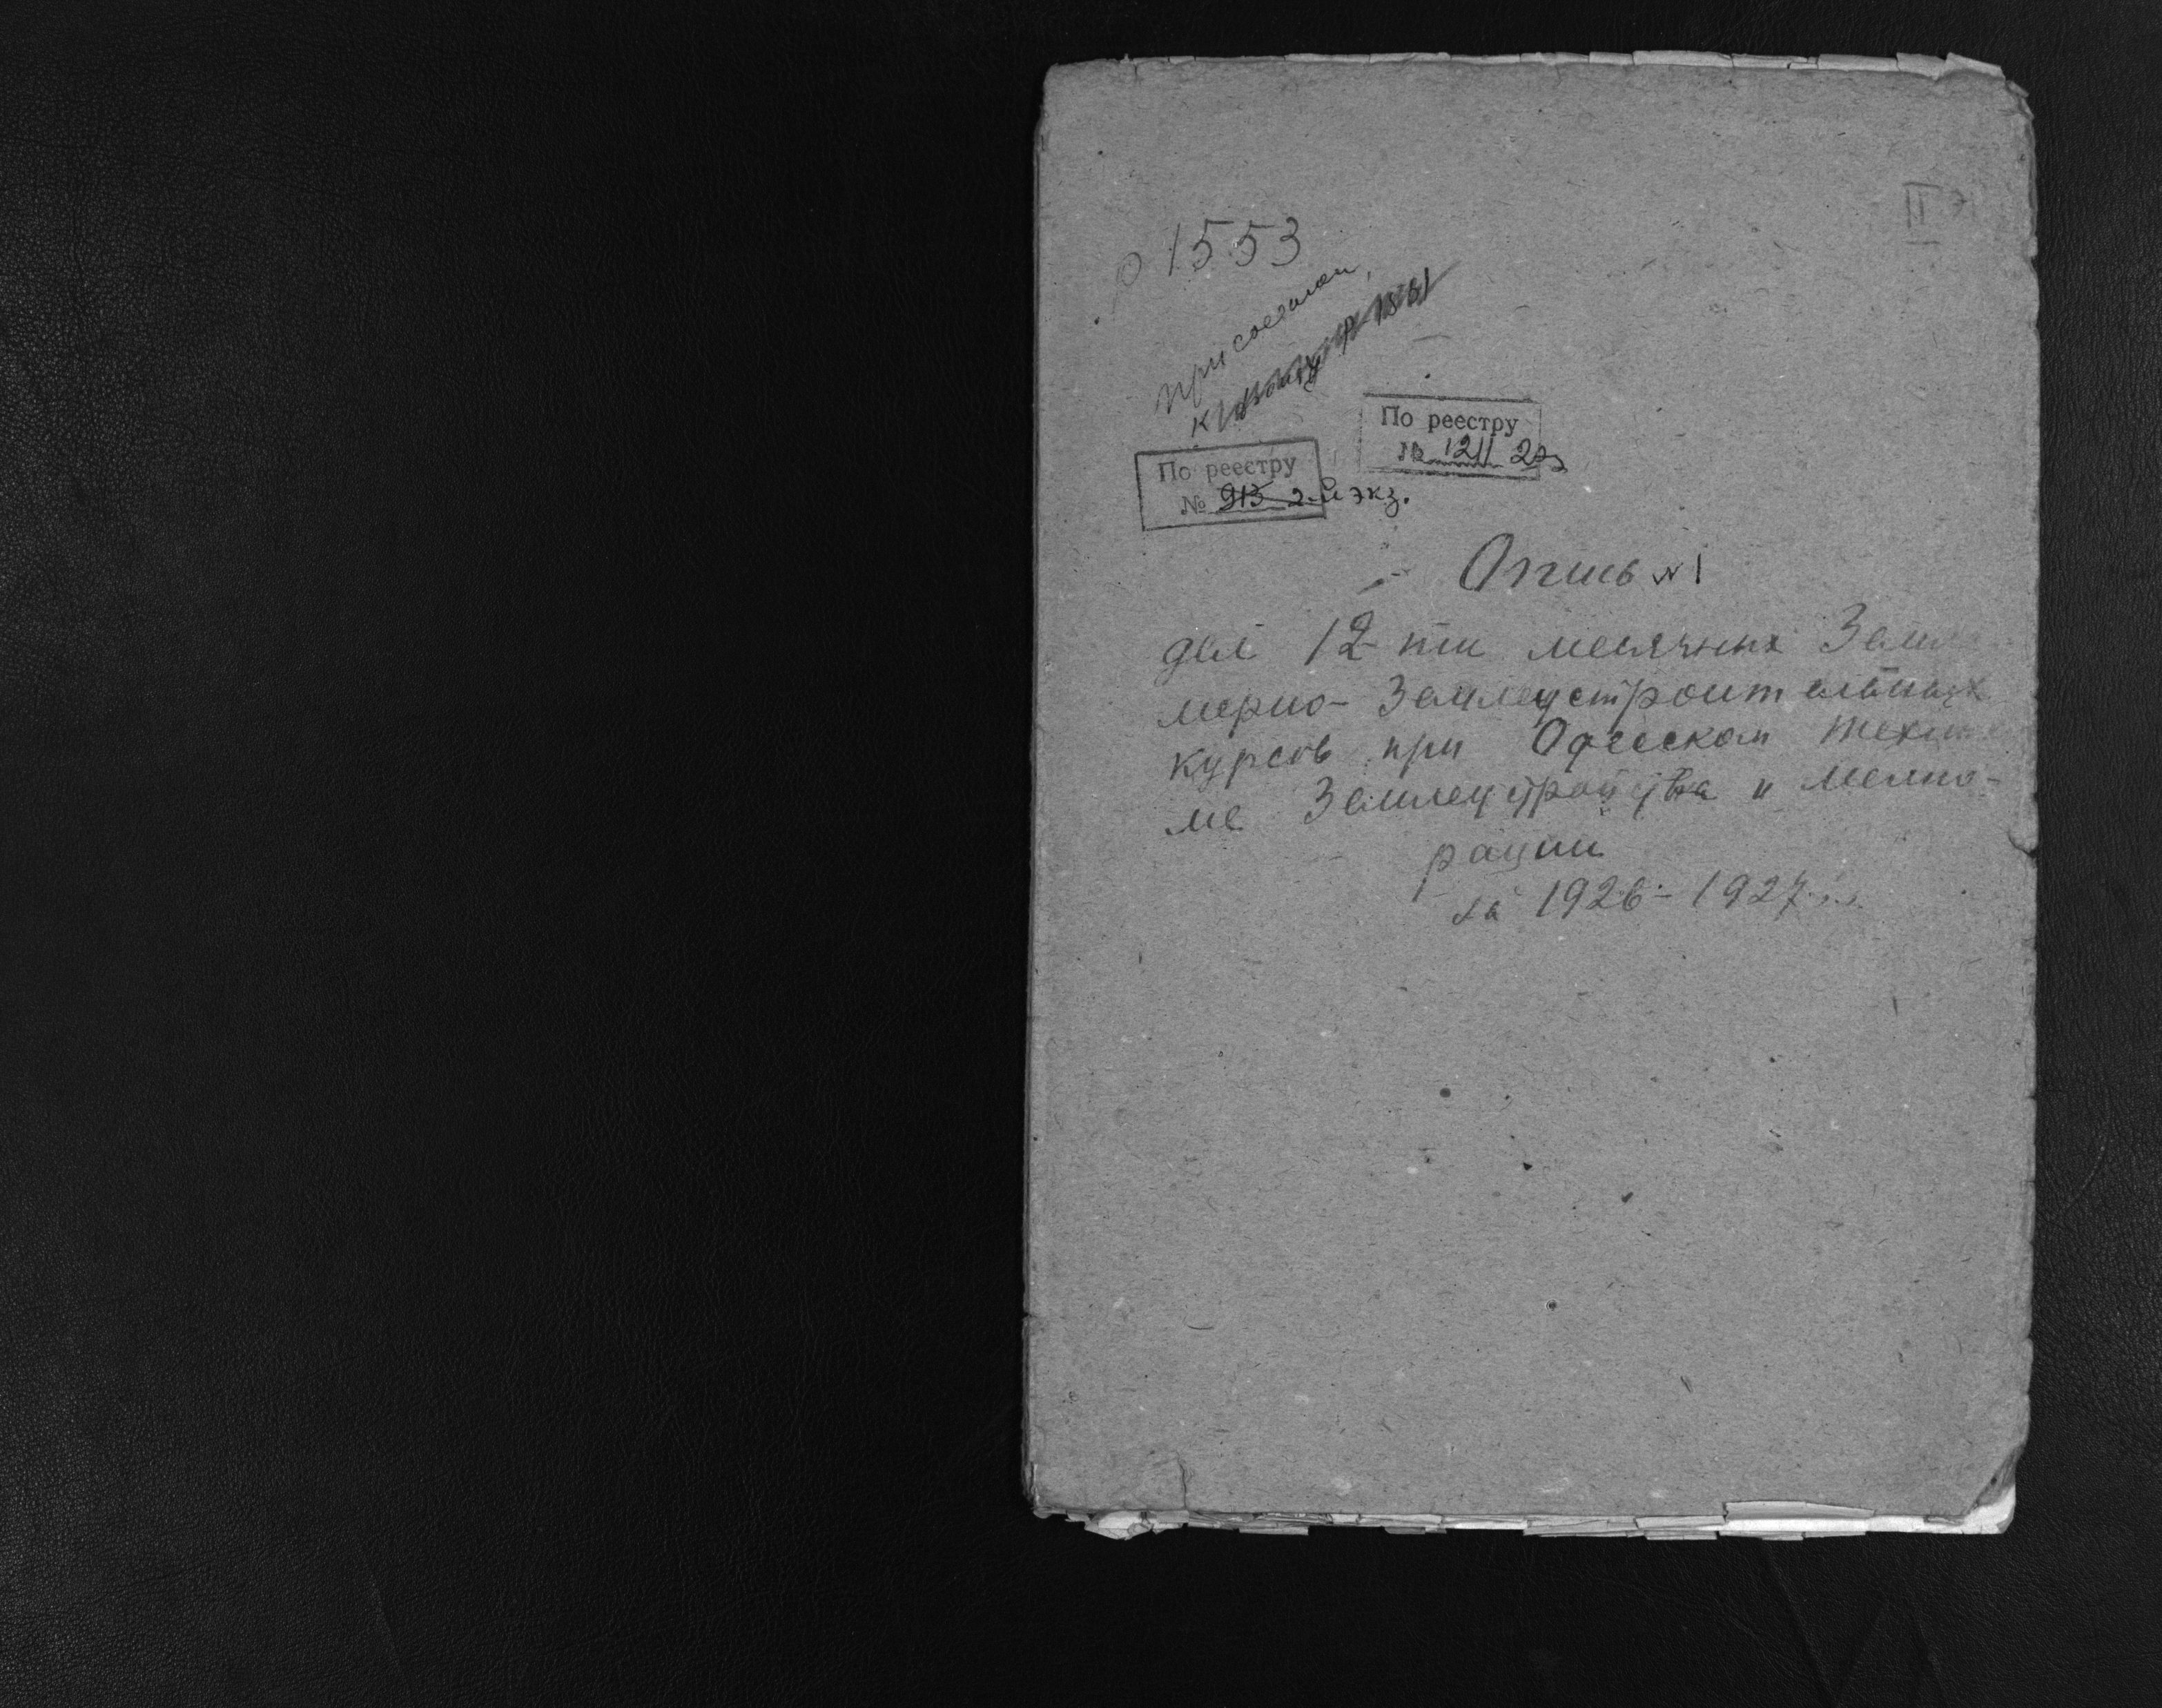 1553
II
По реестру
№ 1211 2э
По реестру
№ 913 2-й экз.
Опись №1
дел 12-ти месячных Земле
мерно-Землеустроительных
курсов при Одесском техни
ме Землеустройства и мелио-
рации
за 1926-1927 г.г.